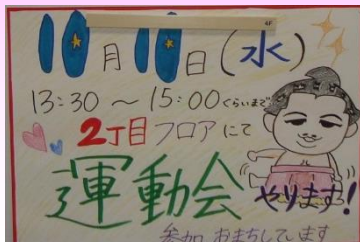 10月10日(水)
13:30 ～ 15:00 くらいまで
2丁目フロアにて
運動会 やります!
参加 おまちしています